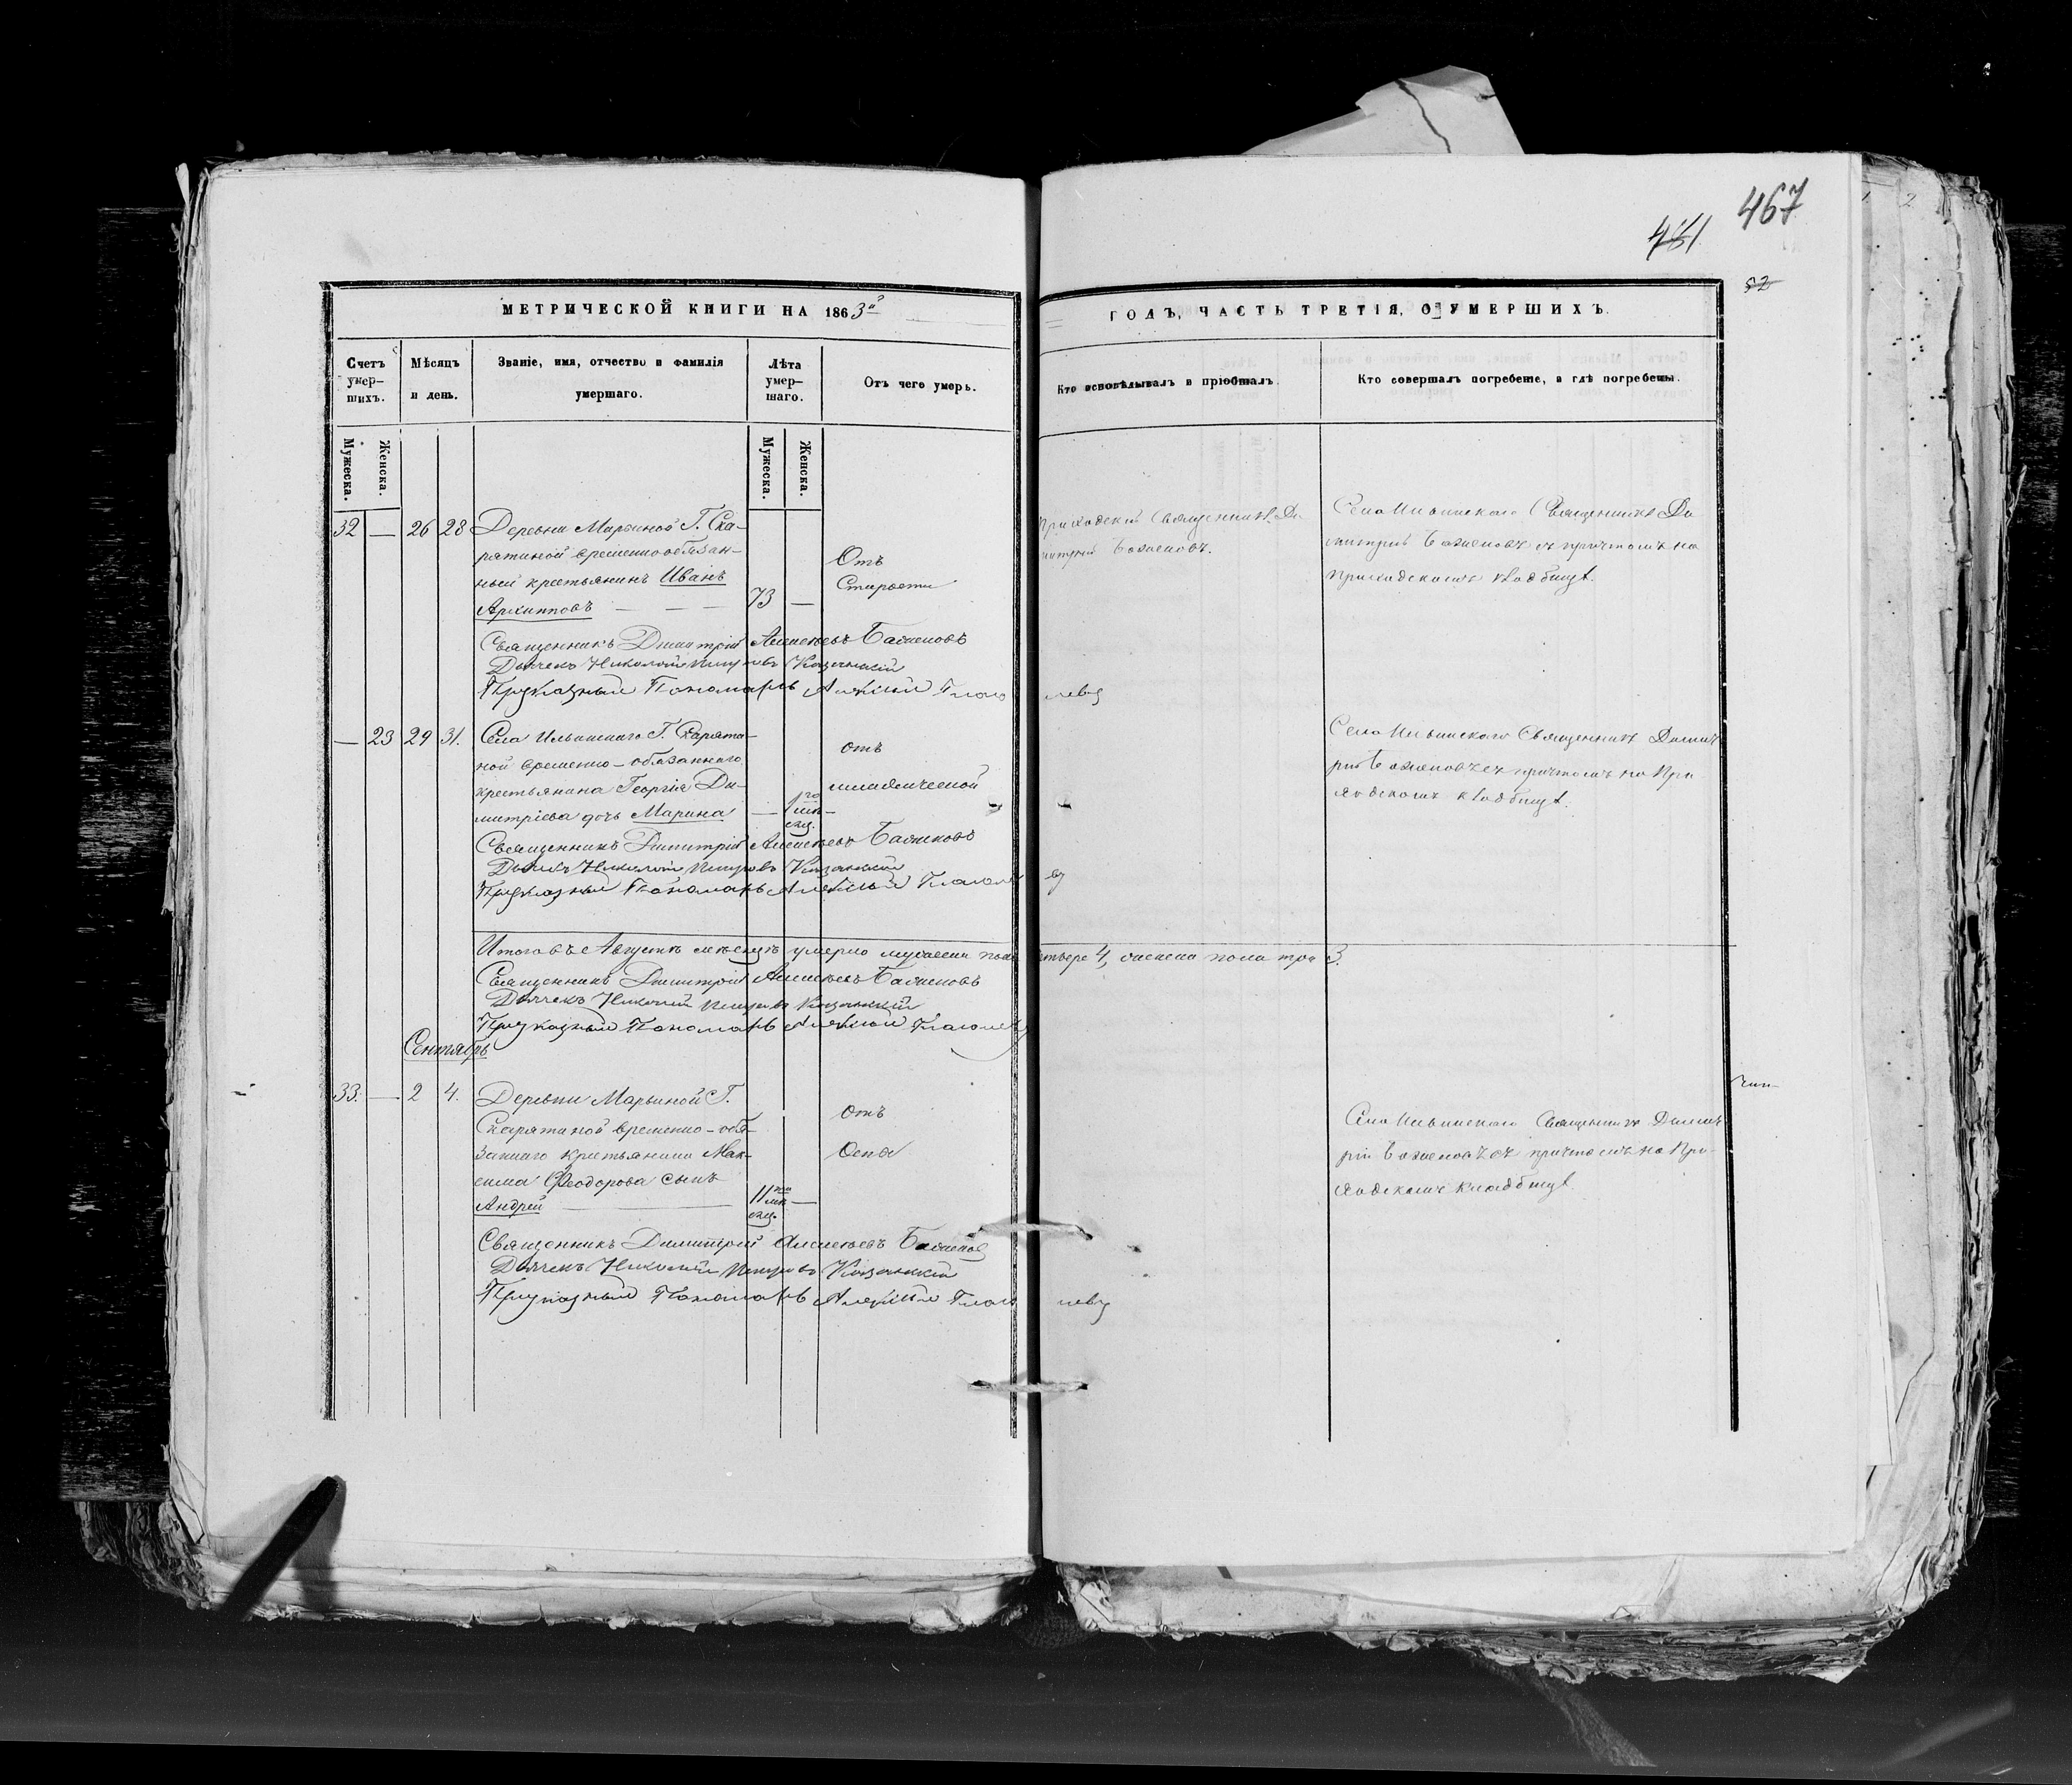 467
481
52
МЕТРИЧЕСКОЙ КНИГИ НА 1863й
ГОДЪ, ЧАСТЬ ТРЕТІЯ, О УМЕРШИХЪ.
Счетъ умер-
шихъ.
Мѣсяцъ
и день.
Званіе, имя, отчество и фамилія
умершаго.
Лѣта
умер-
шаго.
Отъ чего умеръ.
Кто исповѣдывалъ и пріобщалъ.
Кто совершалъ погребеніе, и гдѣ погребены.
Мужеска.
Женска.
Мужеска.
Женска.
32 — 26 28 Деревни Марьиной Г. Ска-
рятиной временнообязан-
ный крестьянинъ Иванъ
Архиповъ — — — 73 —
Отъ
Старости
Приходскій Священникъ Ди
митрій Баженовъ.
Села Ильинскаго Священникъ Ди
митрій Баженовъ съ причтомъ на
Приходскомъ кладбищѣ.
Священникъ Димитрій Алексѣевъ Баженовъ
Дьячекъ Николай Петровъ Казанскій
Пономарь Алексѣй Глаголевъ
— 23 29 31. Села Ильинскаго Г. Скарята-
ной временно-обязаннаго
крестьянина Георгія Ди-
митріева дочь Марина —
отъ
Села Ильинскаго Священникъ Димит
рій Баженовъ съ причтомъ на При
ходскомъ кладбищѣ.
Священникъ Димитрій Алексѣевъ Баженовъ
Дьячекъ Николай Петровъ Казанскій
Пономарь Алексѣй Глаголевъ
Итого въ Августѣ мѣсяцѣ умерло мужеска пола четыре 4, женска пола три 3.
Священникъ Димитрій Алексѣевъ Баженовъ
Дьячекъ Николай Петровъ Казанскій
Пономарь Алексѣй Глаголевъ
Сентябрь
33. — 2 4. Деревни Марьиной Г.
Скарятиной временно-обя-
заннаго крестьянина Мак-
сима Ѳеодорова сынъ
Андрей 11 —
Отъ
Оспы
Села Ильинскаго Священникъ Димит
рій Баженовъ съ причтомъ на При-
ходскомъ кладбищѣ.
Священникъ Димитрій Алексѣевъ Баженовъ
Дьячекъ Николай Петровъ Казанскій
Пономарь Алексѣй Глаголевъ